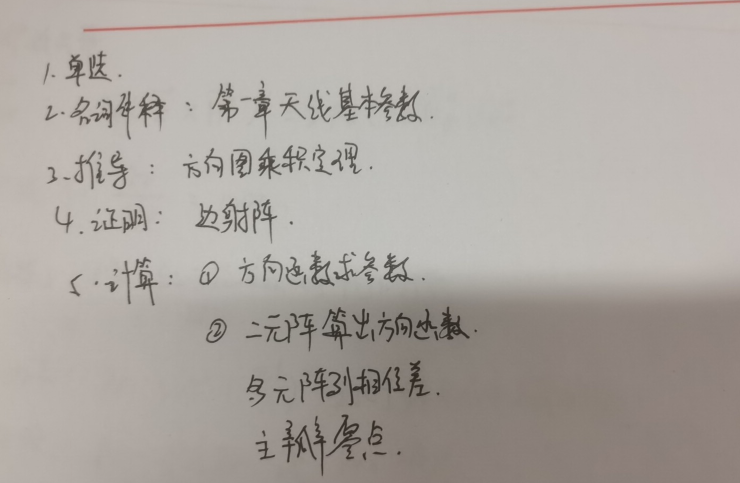 1. 单选.
2. 名词解释: 第一章天线基本参数.
3. 推导: 方向图乘积定理.
4. 证明: 边射阵.
5. 计算: ① 方向函数求参数.
② 二元阵算出方向函数.
多元阵列相位差.
主瓣零点.